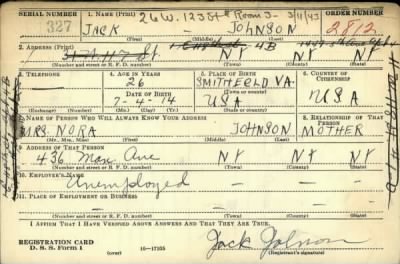 SERIAL NUMBER 327
1. NAME (Print) 26 W. 123 St Room 3- 3/11/43
ORDER NUMBER 2812
JACK - JOHNSON
2. ADDRESS (Print)
4B
N.Y N.Y
(Number and street or R. F. D. number) (Town) (County) (State)
3. TELEPHONE
4. AGE IN YEARS
5. PLACE OF BIRTH
6. COUNTRY OF CITIZENSHIP
26
SMITHFIELD VA.
DATE OF BIRTH
(Town or county)
7-4-14
USA
USA
(Exchange) (Number)
(Mo.) (Day) (Yr.)
(State or country)
7. NAME OF PERSON WHO WILL ALWAYS KNOW YOUR ADDRESS
8. RELATIONSHIP OF THAT PERSON
MRS. NORA JOHNSON MOTHER
(Mr., Mrs., Miss) (First) (Middle) (Last)
9. ADDRESS OF THAT PERSON
436 Man Ave NY NY
(Number and street or R. F. D. number) (Town) (County) (State)
10. EMPLOYER'S NAME
Unemployed
11. PLACE OF EMPLOYMENT OR BUSINESS
(Number and street or R. F. D. number) (Town) (County) (State)
I AFFIRM THAT I HAVE VERIFIED ABOVE ANSWERS AND THAT THEY ARE TRUE.
REGISTRATION CARD
D. S. S. Form 1
16-17105
Jack Johnson
(Registrant's signature)